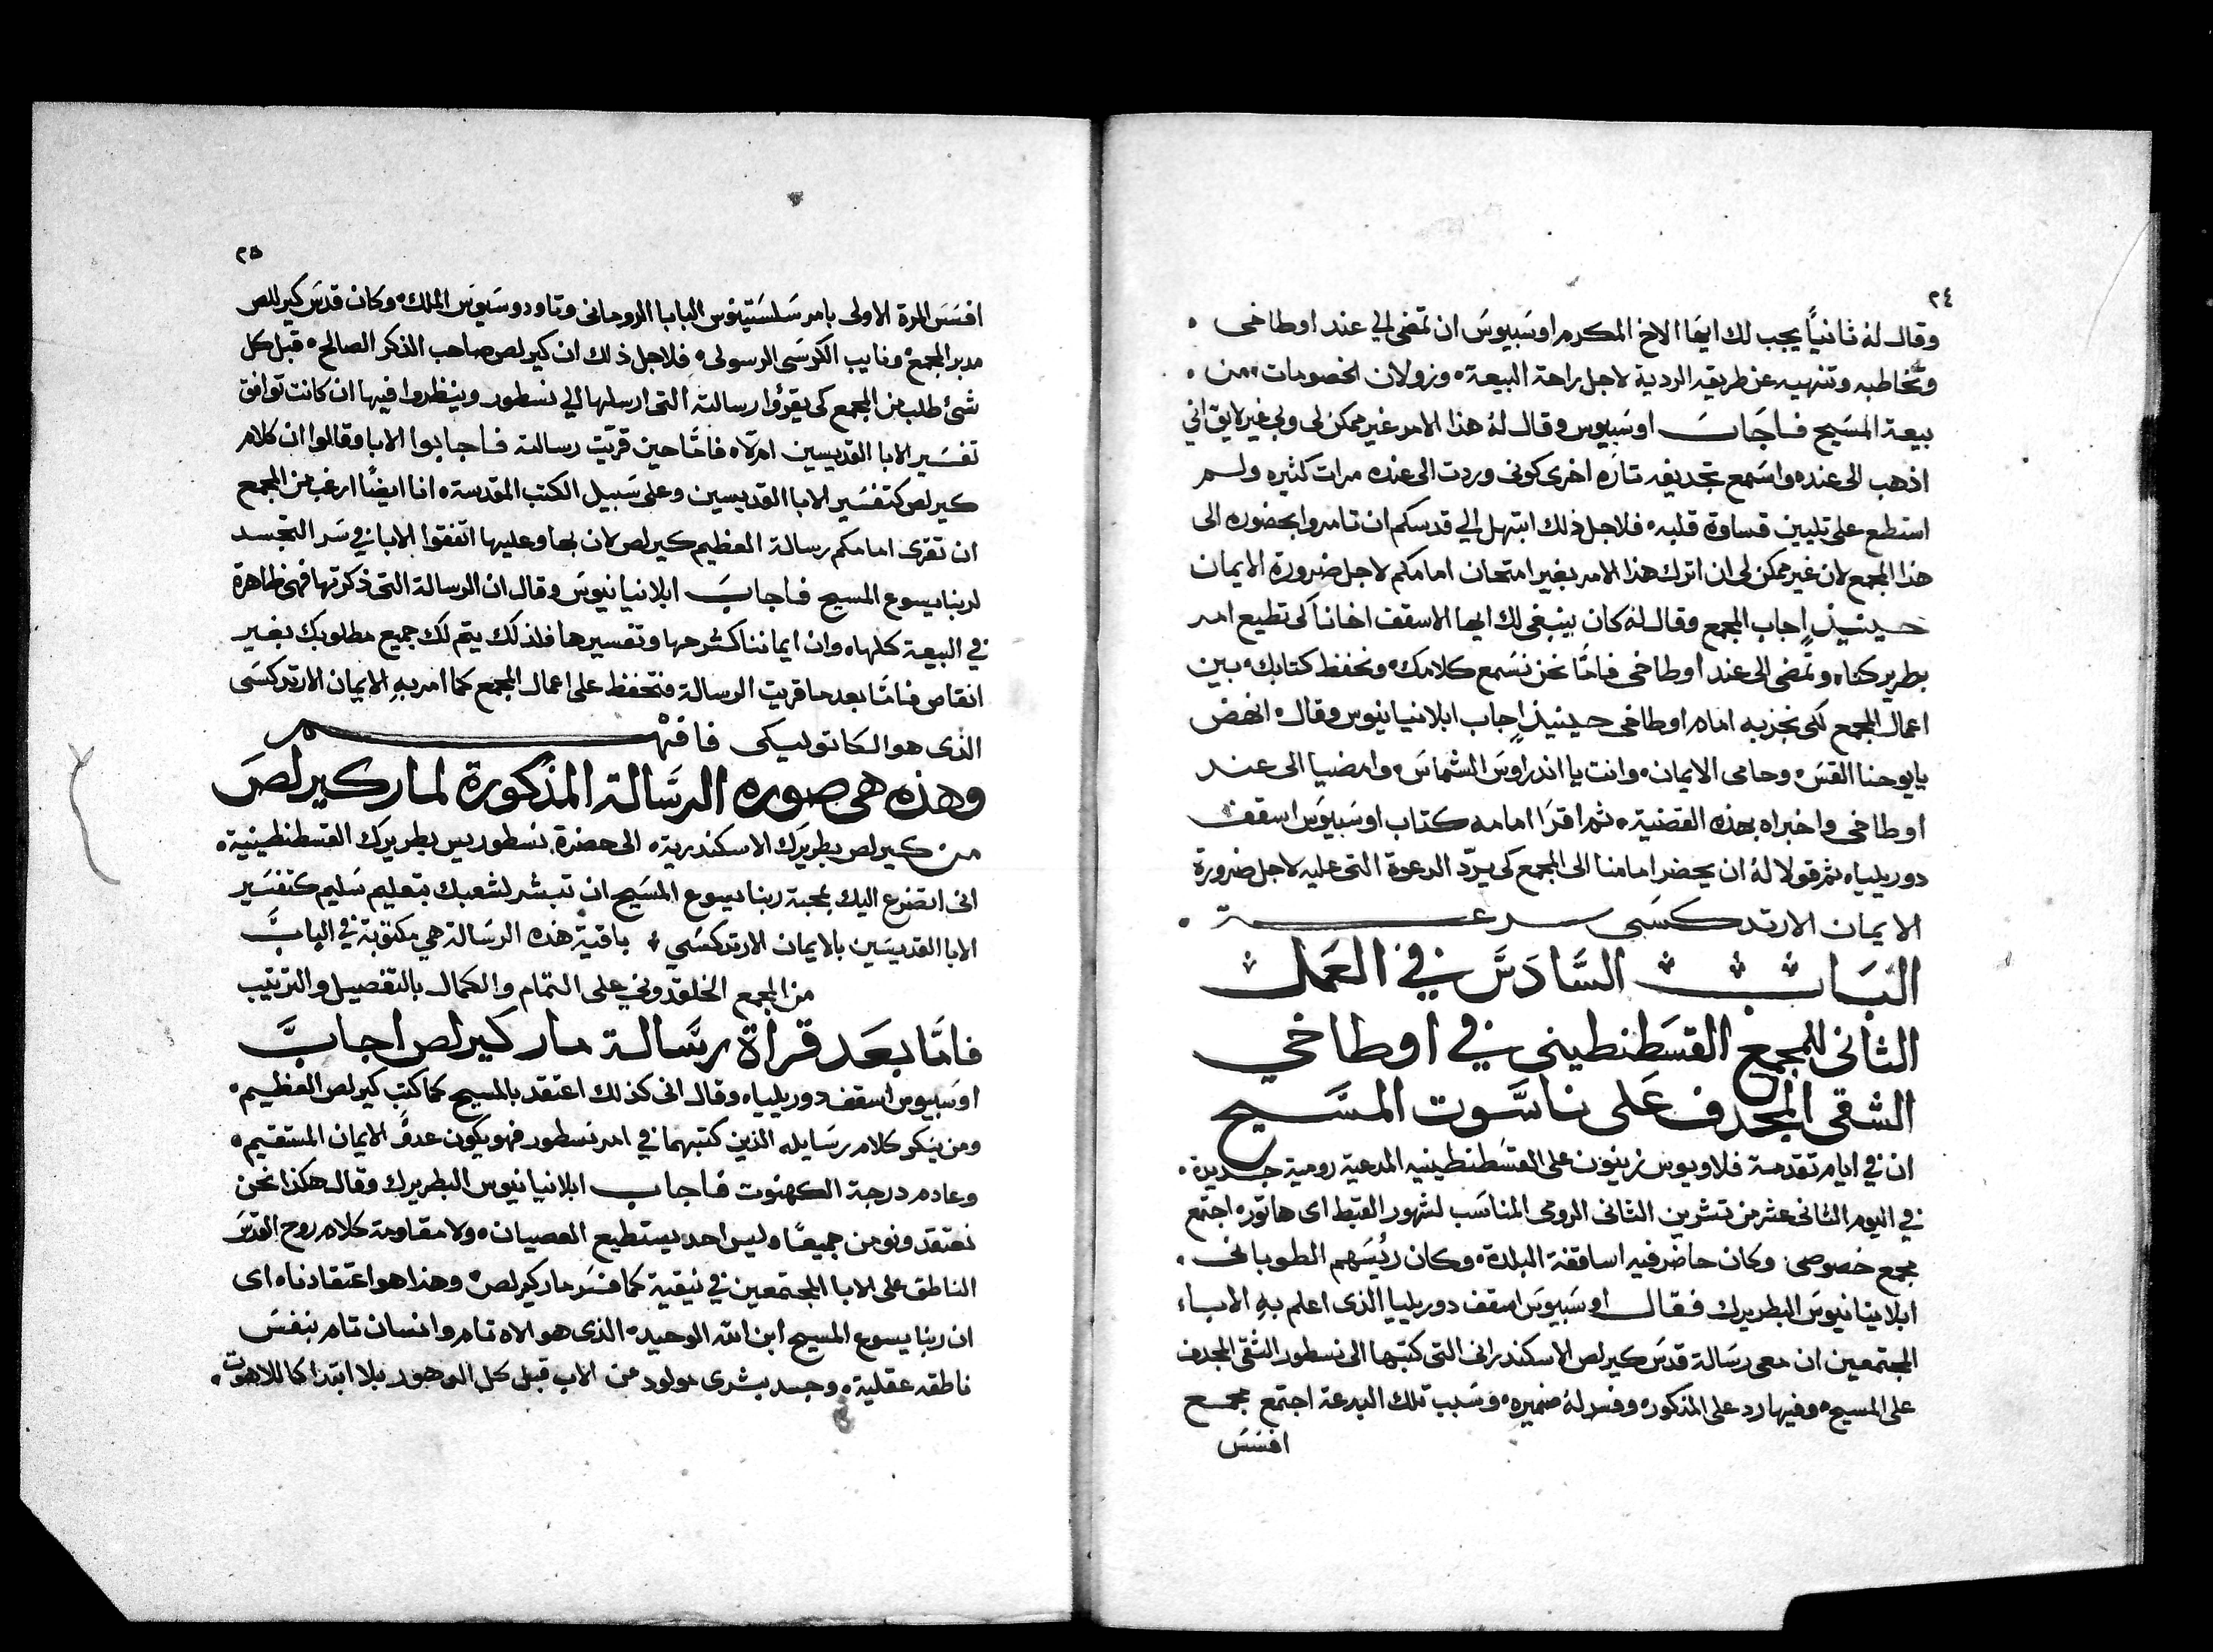 ٢٤
وقال له ثانياً يجب لك ايها الاخ المكرم اوسبيوس ان تمضي الي عند اوطاخى
وتخاطبه وتنهيه عن طريقه الردية لاجل راحة البيعة وزولان الخصومات من
بيعة المسيح فاجاب اوسبيوس وقال له هذا الامر غير ممكن لى ولي غير لايق اني
اذهب الى عنده واسمع تجديفه تاره اخرى كونى وردت الى عنده مرات كثيره ولم
استطع على تليين قساوة قلبه فلاجل ذلك ابتهل الي قدسكم ان تامروا بحضوره الى
هذا المجمع لان غير ممكن لى ان اترك هذا الامر بغير امتحان امامكم لاجل ضرورة الايمان
حينيذٍ اجاب المجمع وقال له كان ينبغي لك ايها الاسقف اخانا كى تطيع امر
بطريركناه وتمضى الى عند اوطاخى فامّا نحن نسمع كلامك ونحفظ كتابك بين
اعمال المجمع لكى نخزيه امام اوطاخى حينيذٍ اجاب ابلانيانيوس وقال انهض
يايوحنا القس وحامى الايمان وانت يا اندراوس الشماس وامضيا الى عند
اوطاخى واخبراه بهذه القضية ثم اقرا امامه كتاب اوسبيوس اسقف
دوريلياه ثم قولا له ان يحضر امامنا الى المجمع كى يردّ الدعوة التى عليه لاجل ضرورة
الايمان الارتدكسى سرعة
الباب السادس في العمل
الثانى للمجمع القسطنطينى في اوطاخي
الشقى المجدف على ناسوت المسيح
ان في ايام تقدمة فلاويوس زينون على القسطنطينيه المدعية رومية جديدة
في اليوم الثانى عشر من تشرين الثانى الرومى المناسب لشهور القبط اى هاتور اجتمع
مجمع خصوصى وكان حاضر فيه اساقفة البلدة وكان رئيسهم الطوبانى
ابلانيانيوس البطريرك فقال اوسبيوس اسقف دوريليا الذى اعلم به الاباء
المجتمعين ان معى رسالة قدس كيرلص الاسكندرانى التى كتبها الى نسطور الشقى المجدف
على المسيح وفيها رد على المذكور وفسر له ضميره وسبب تلك البدعة اجتمع مجمع
افسس
٢٥
افسس المرة الاولى بامر سلستينوس البابا الروحانى وتاودوسيوس الملك وكان قدس كيرللص
مدبر المجمع ونايب الكرسى الرسولى فلاجل ذلك ان كيرلص صاحب الذكر الصالح قبل كل
شئ طلب من المجمع كى يقرؤا رسالته التى ارسلها الي نسطور وينظروا فيها ان كانت توافق
تفسير الابا القديسين ام لاه فامّا حين قريت رسالته فاجابوا الابا وقالوا ان كلام
كيرلص كتفسير الابا القديسين وعلى سبيل الكتب المقدسة انا ايضًا ارغب من المجمع
ان تقرى امامكم رسالة العظيم كيرلص لان بها وعليها اتفقوا الابا في سر التجسد
لربنا يسوع المسيح فاجاب ابلانيانيوس وقال ان الرسالة التى ذكرتها فهى ظاهرة
في البيعة كلها وان ايماننا كشرحها وتفسيرها فلذلك يتم لك جميع مطلوبك بغير
انقاص فامّا بعد ما قريت الرسالة فتحفظ على اعمال المجمع كما امر به الايمان الارتدكسى
الذى هو الكاتوليكى فافهم
وهذه هى صوره الرسالة المذكورة لمار كيرلص
من كيرلص بطريرك الاسكندرية الى حضرة نسطوريس بطريرك القسطنطينية
انى اتضرع اليك بمحبة ربنا يسوع المسيح ان تبشر لشعبك بتعليم سليم كتفسير
الابا القديسين بالايمان الارتدكسي باقية هذه الرسالة هي مكتوبة في الباب
من المجمع الخلقدوني على التمام والكمال بالتفصيل والترتيب
فامّا بعد قراة رسالة مار كيرلص اجاب
اوسبيوس اسقف دوريلياه وقال انى كذلك اعتقد بالمسيح كما كتب كيرلص العظيم
ومن ينكر كلام رسايله الذين كتبهما في امر نسطور فهو يكون عدوّ الايمان المستقيم
وعادم درجة الكهنوت فاجاب ابلانيانيوس البطريرك وقال هكذا نحن
نعتقد ونومن جميعًا وليس احد يستطيع العصيان ولا مقاومة كلام روح القدس
الناطق على الابا المجتمعين في نيقية كما فسر مار كيرلص وهذا هو اعتقادناه اى
ان ربنا يسوع المسيح ابن الله الوحيد الذى هو الاه تام وانسان تام بنفس
ناطقه عقلية وجسد بشرى مولود من الاب قبل كل الدهور بلا ابتدا كاللاهوت